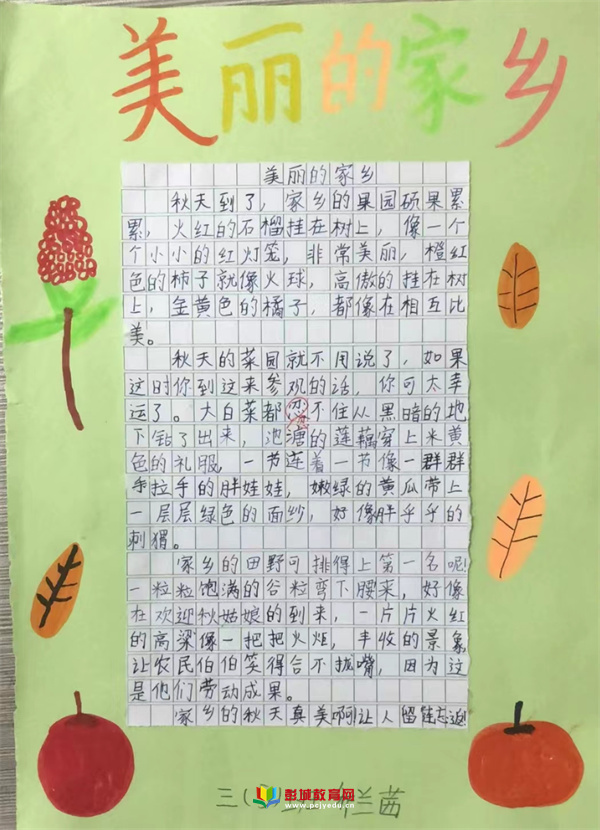 美丽的家乡
美丽的家乡
秋天到了，家乡的果园硕果累
累，火红的石榴挂在树上，像一个
个小小的红灯笼，非常美丽，橙红
色的柿子就像火球，高傲的挂在树
上，金黄色的橘子，都像在相互比
美。
秋天的菜园就不用说了，如果
这时你到这来参观的话，你可太幸
运了。大白菜都忍不住从黑暗的地
下钻了出来，池溏的莲藕穿上米黄
色的礼服，一节连着一节像一群群
手拉手的胖娃娃，嫩绿的黄瓜带上
一层层绿色的面纱，好像胖乎乎的
刺猬。
家乡的田野可排得上第一名呢！
一粒粒饱满的谷粒弯下腰来，好像
在欢迎秋姑娘的到来，一片片火红
的高梁像一把把火炬，丰收的景象
让农民伯伯笑得合不拢嘴，因为这
是他们劳动成果。
家乡的秋天真美啊让人留连忘返
三(
兰茜
彭城教育网
www.pcjyedu.cn